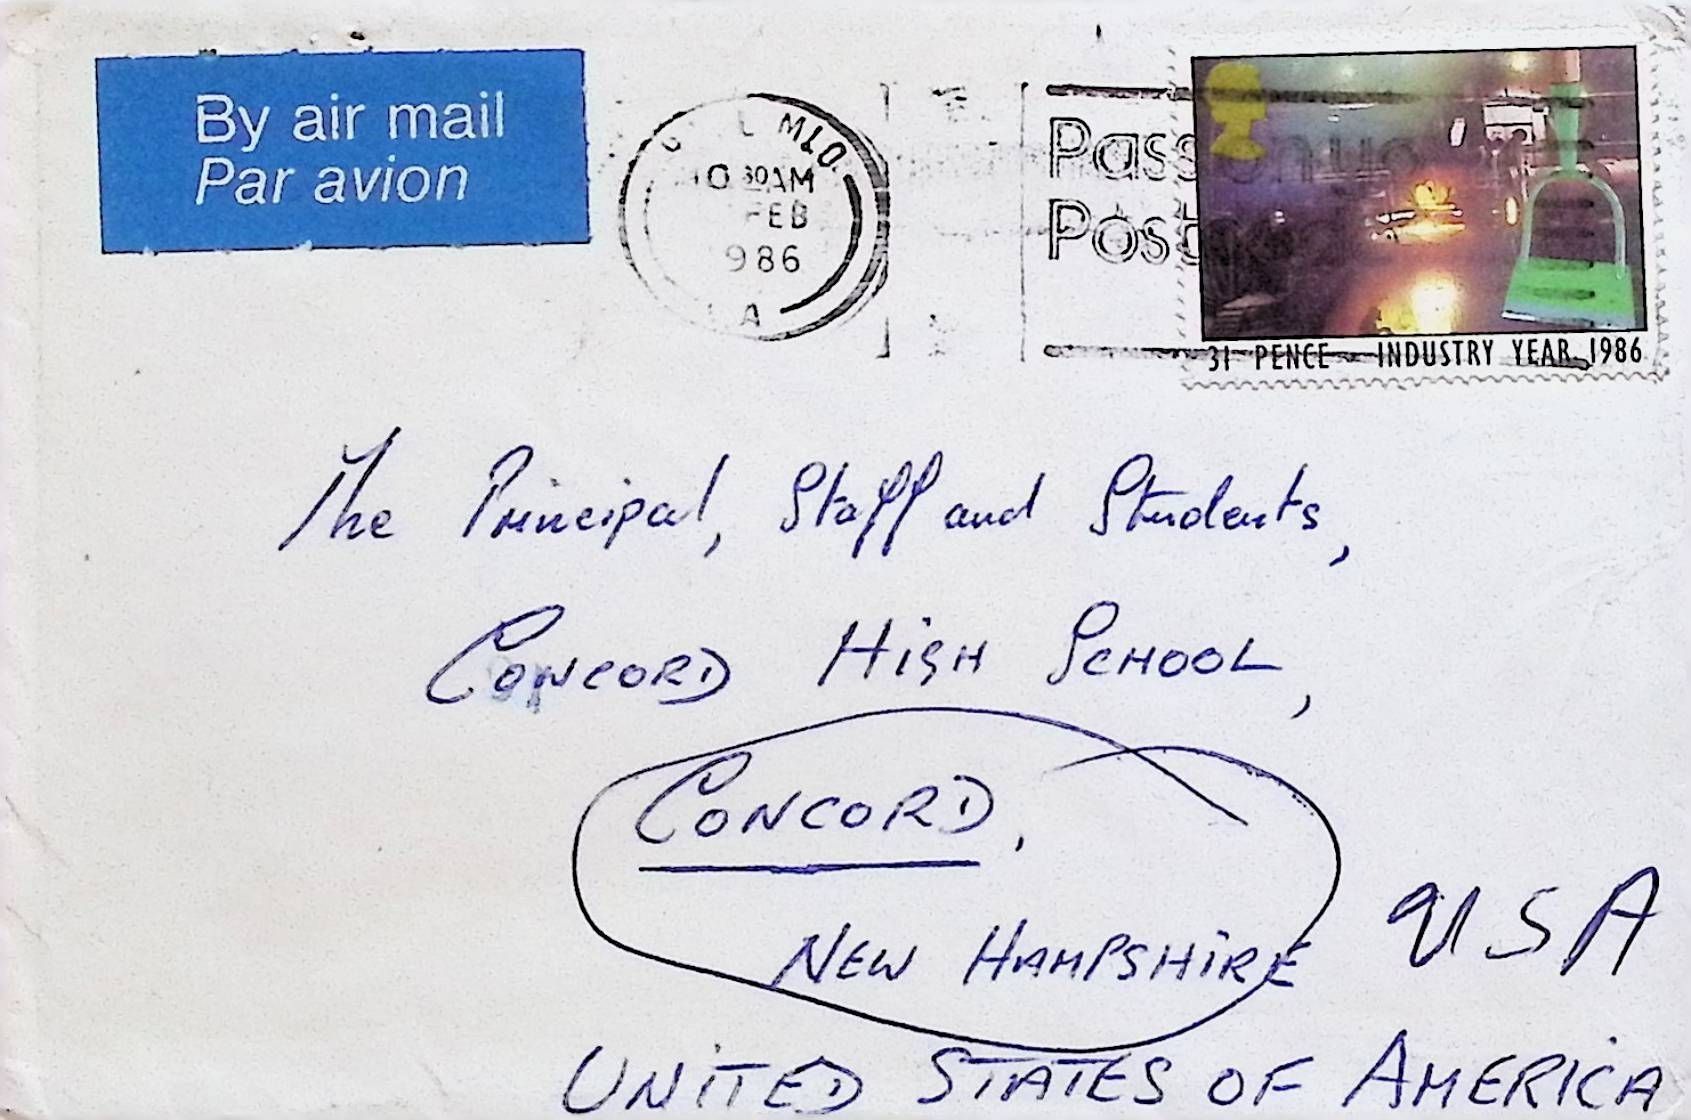 By air mail
Par avion
MLO
30AM
FEB
986
A
Pass on your
Postcode
31 PENCE INDUSTRY YEAR 1986
The Principal, Staff and Students,
CONCORD HIGH SCHOOL,
CONCORD,
NEW HAMPSHIRE
USA
UNITED STATES OF AMERICA